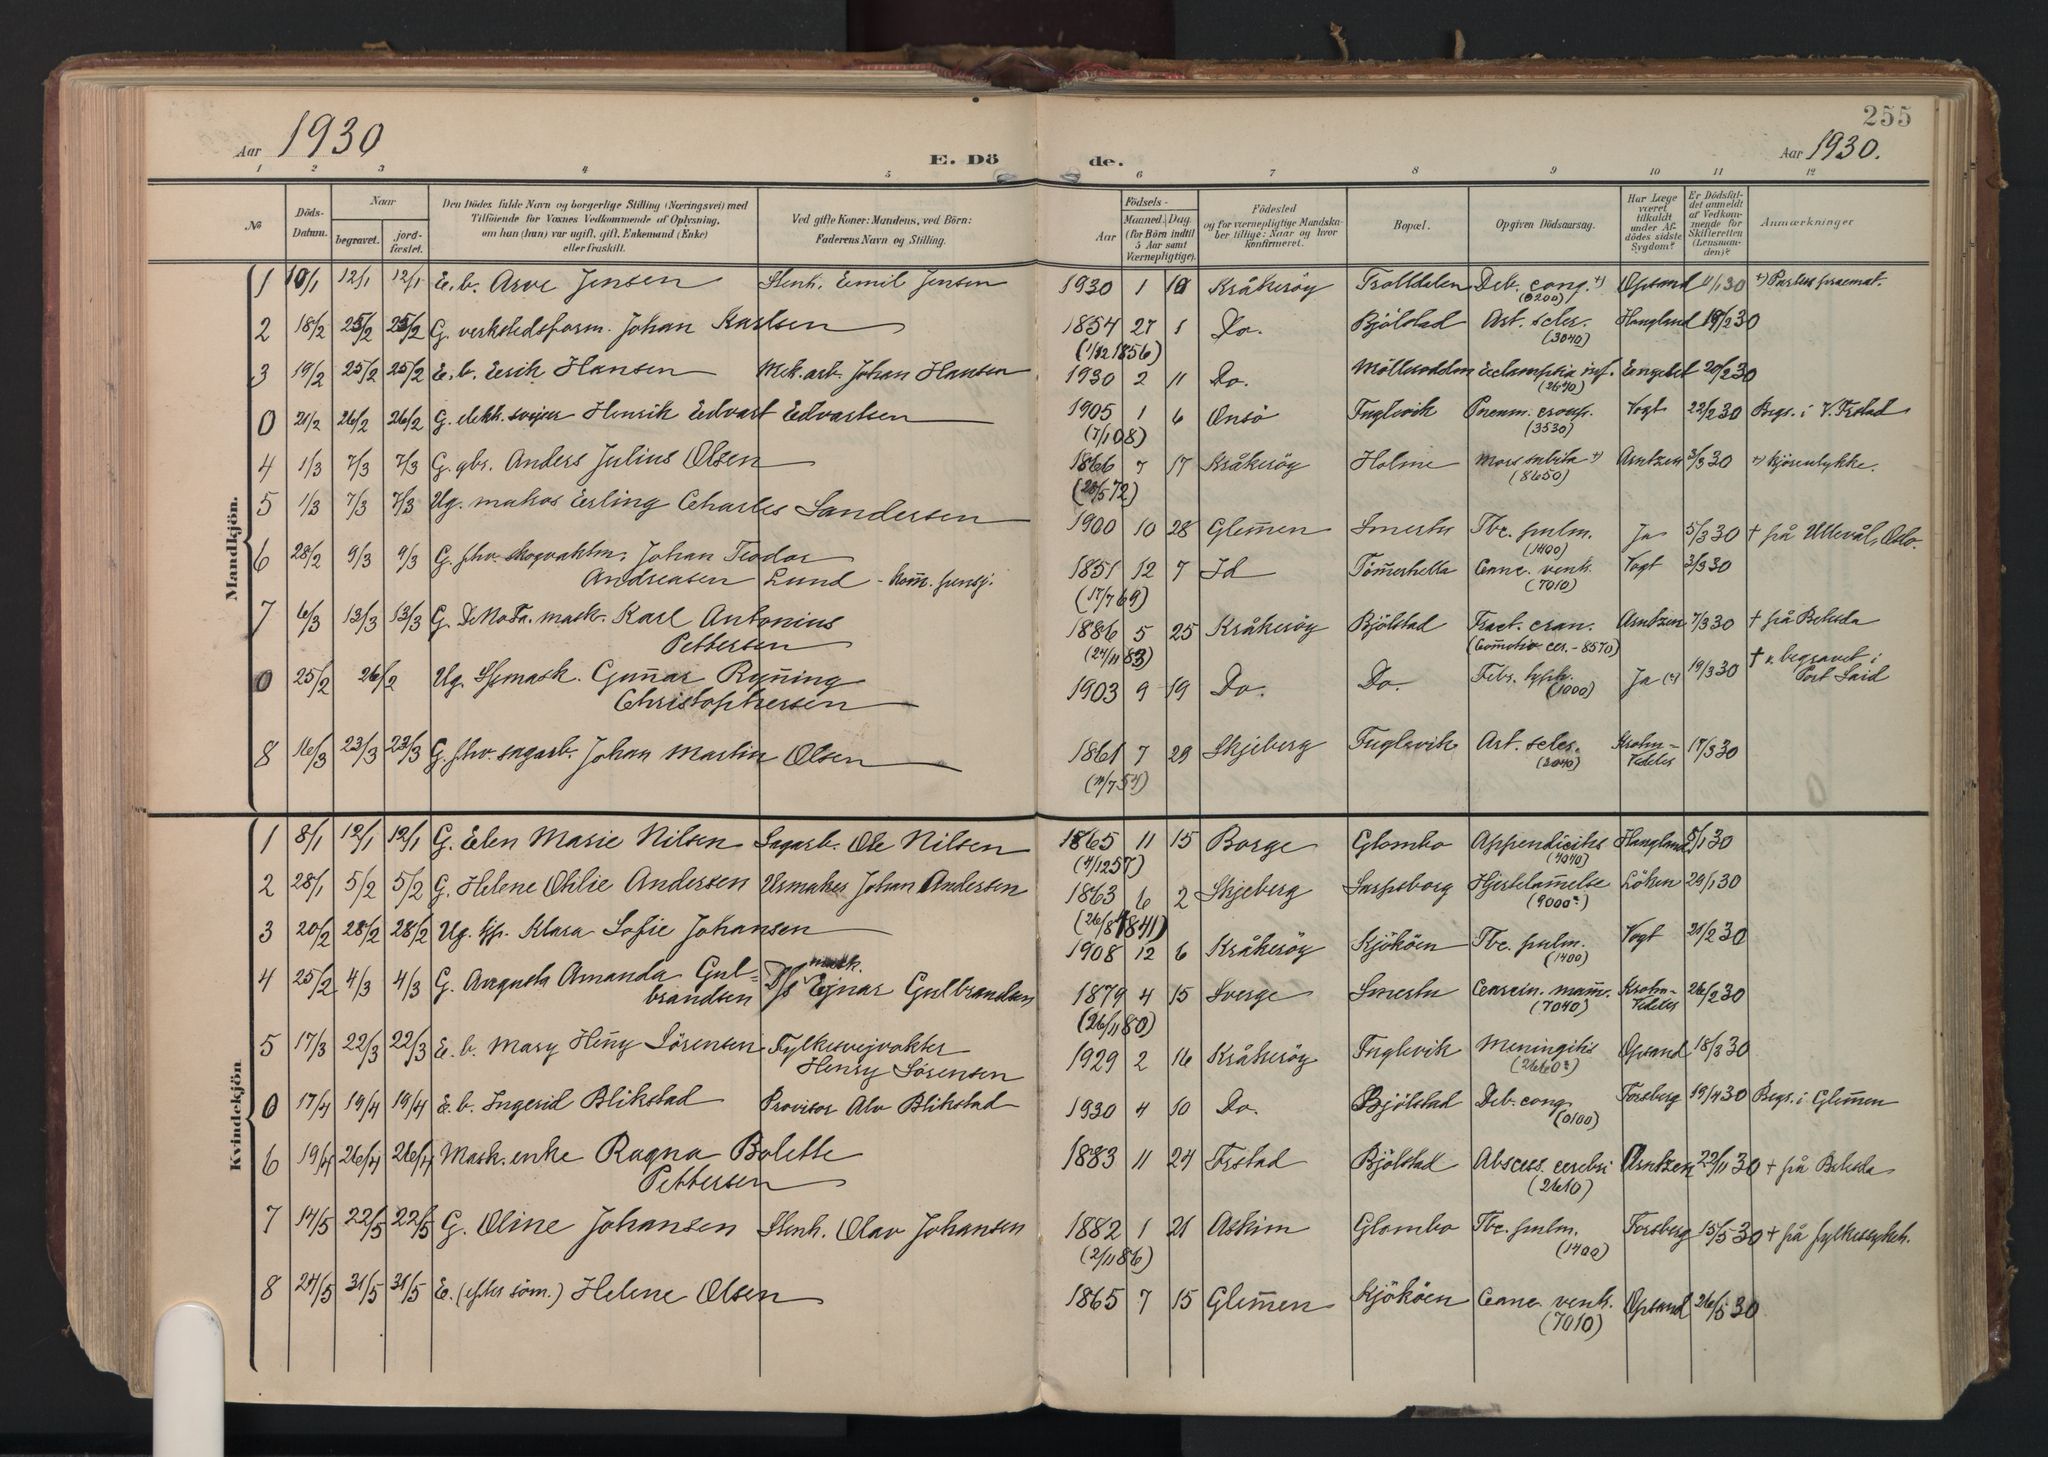 255
Aar 1930
E. Dö de.
Aar 1930.
1 2 3 4 5 6 7 8 9 10 11 12
№
Döds-Datum.
Naar
begravet.
jord-fæstet.
Den Dödes fulde Navn og borgerlige Stilling (Næringsvei) med
Tilföiende for Voxnes Vedkommende af Oplysning,
om han (hun) var ugift, gift, Enkemand (Enke)
eller fraskilt.
Ved gifte Koner: Mandens, ved Börn:
Faderens Navn og Stilling.
Födsels-
Aar
Maaned. Dag.
(for Börn indtil
5 Aar samt
Værnepligtige).
Födested
og for værnepligtige Mandska-
ber tillige: Naar og hvor
konfirmeret.
Bopæl.
Opgiven Dödsaarsag.
Har Læge
været
tilkaldt
under Af-
dödes sidste
Sygdom?
Er Dödsfal-
det anmeldt
af Vedkom-
mende for
Skifteretten
(Lensman-
den)?
Anmærkninger
Mandkjön.
1 10/1 12/1 12/1 E. b. Arve Jensen Stenh. Emil Jensen 1930 1 10 Kråkeröy Trolldalen Deb. cong. +) Opsand 11/1 30 +) Partus praemat.
(0200)
2 18/2 25/2 25/2 G. verkstedsform. Johan Karlsen 1854 27 1 Do. Bjölstad Art. scler. Haugland 19/2 30
(1/12 1856) (3040)
3 19/2 25/2 25/2 E. b. Erik Hansen Mek. arb. Johan Hansen 1930 2 11 Do. Mölleodden Eclampsia inf. Engebet 20/2 30
(2670)
0 21/2 26/2 26/2 G. elekt. sveiser Henrik Edvart Edvartsen 1905 1 6 Onsö Fuglevik Pneum. croup. Vogt 22/2 30 Begr. i V. Frstad
(7/1 08) (3530)
4 1/3 7/3 7/3 G. gbr. Anders Julius Olsen 1866 7 17 Kråkeröy Holme Mors subita +) Arntzen 3/3 30 +) Kjöreulykke.
(28/5 72) (8650)
5 1/3 7/3 7/3 Ug. matros Erling Charles Sandersen 1900 10 28 Glemmen Smertu Tbc. pulm. Ja 5/3 30 + på Ullevål, Oslo.
(1400)
6 28/2 9/3 9/3 G. fhv. skogvaktm. Johan Teodor
Andreasen Lund - komm. pensj. 1851 12 7 Id Tömmerhella Canc. ventr. Vogt 3/3 30
(17/7 69) (7010)
7 6/3 13/3 13/3 G. DeNoFa. mask. Karl Antonius
Pettersen 1886 5 25 Kråkeröy Bjölstad Fract. cran. Arntzen 7/3 30 + på Betesda
(24/11 83) (Commotio cer. - 8570)
0 25/2 26/2 Ug. Spmask. Gunnar Rynning
Christophersen 1903 9 19 Do. Do. Febr. typh. Ja (?) 19/3 30 + o. begravet i
(1000) Port Said
8 16/3 23/3 23/3 G. fhv. sagarb. Johan Martin Olsen 1861 7 29 Skjeberg Fuglevik Art. scler. Krohn-Vedeler 17/3 30
(11/7 54) (3040)
Kvindekjön
1 8/1 12/1 12/1 G. Elen Marie Nilsen Sagarb. Ole Nilsen 1865 11 15 Borge Glombo Appendicitis Haugland 5/1 30
(4/12 57) (4040)
2 28/1 5/2 5/2 G. Helene Otilie Andersen Urmaker Johan Andersen 1863 6 2 Skjeberg Sarpsborg Hjertelammelse Löken 29/1 30
(26/8 1841) (9000a)
3 20/2 28/2 28/2 Ug. tjp. Klara Sofie Johansen 1908 12 6 Kråkeröy Kjököen Tbc. pulm. Vogt 21/2 30
(1400)
4 25/2 4/3 4/3 G. Augusta Amanda Gul-
brandsen D/s mask. Ejnar Gulbrandsen 1879 4 15 Sverge Smertu Carcin. mamm. Krohn-Vedeler 26/2 30
(26/11 80) (7040)
5 17/3 22/3 22/3 E. b. Mary Henny Sörensen Fylkesvejvokter
Henry Sörensen 1929 2 16 Kråkeröy Fuglevik Meningitis Opsand 18/3 30
(2660a)
0 17/4 19/4 19/4 E. b. Ingerid Blikstad Provisor Alv Blikstad 1930 4 10 Do. Bjölstad Deb. cong. Forsberg 19/4 30 Begr. i Glemmen
(0100)
6 19/4 26/4 26/4 Mask. enke Ragna Bolette
Pettersen 1883 11 24 Frstad Bjölstad Abscess. cerebri Arntzen 22/11 30 + på Betesda
(2610)
7 14/5 22/5 22/5 G. Oline Johansen Stenh. Olav Johansen 1882 1 21 Askim Glombo Tbc. pulm. Forsberg 15/5 30 + på fylkessykeh.
(2/11 86) (1400)
8 24/5 31/5 31/5 E. (efter söm.) Helene Olsen 1865 7 15 Glemmen Kjököen Canc. ventr. Opsand 26/5 30
(7010)